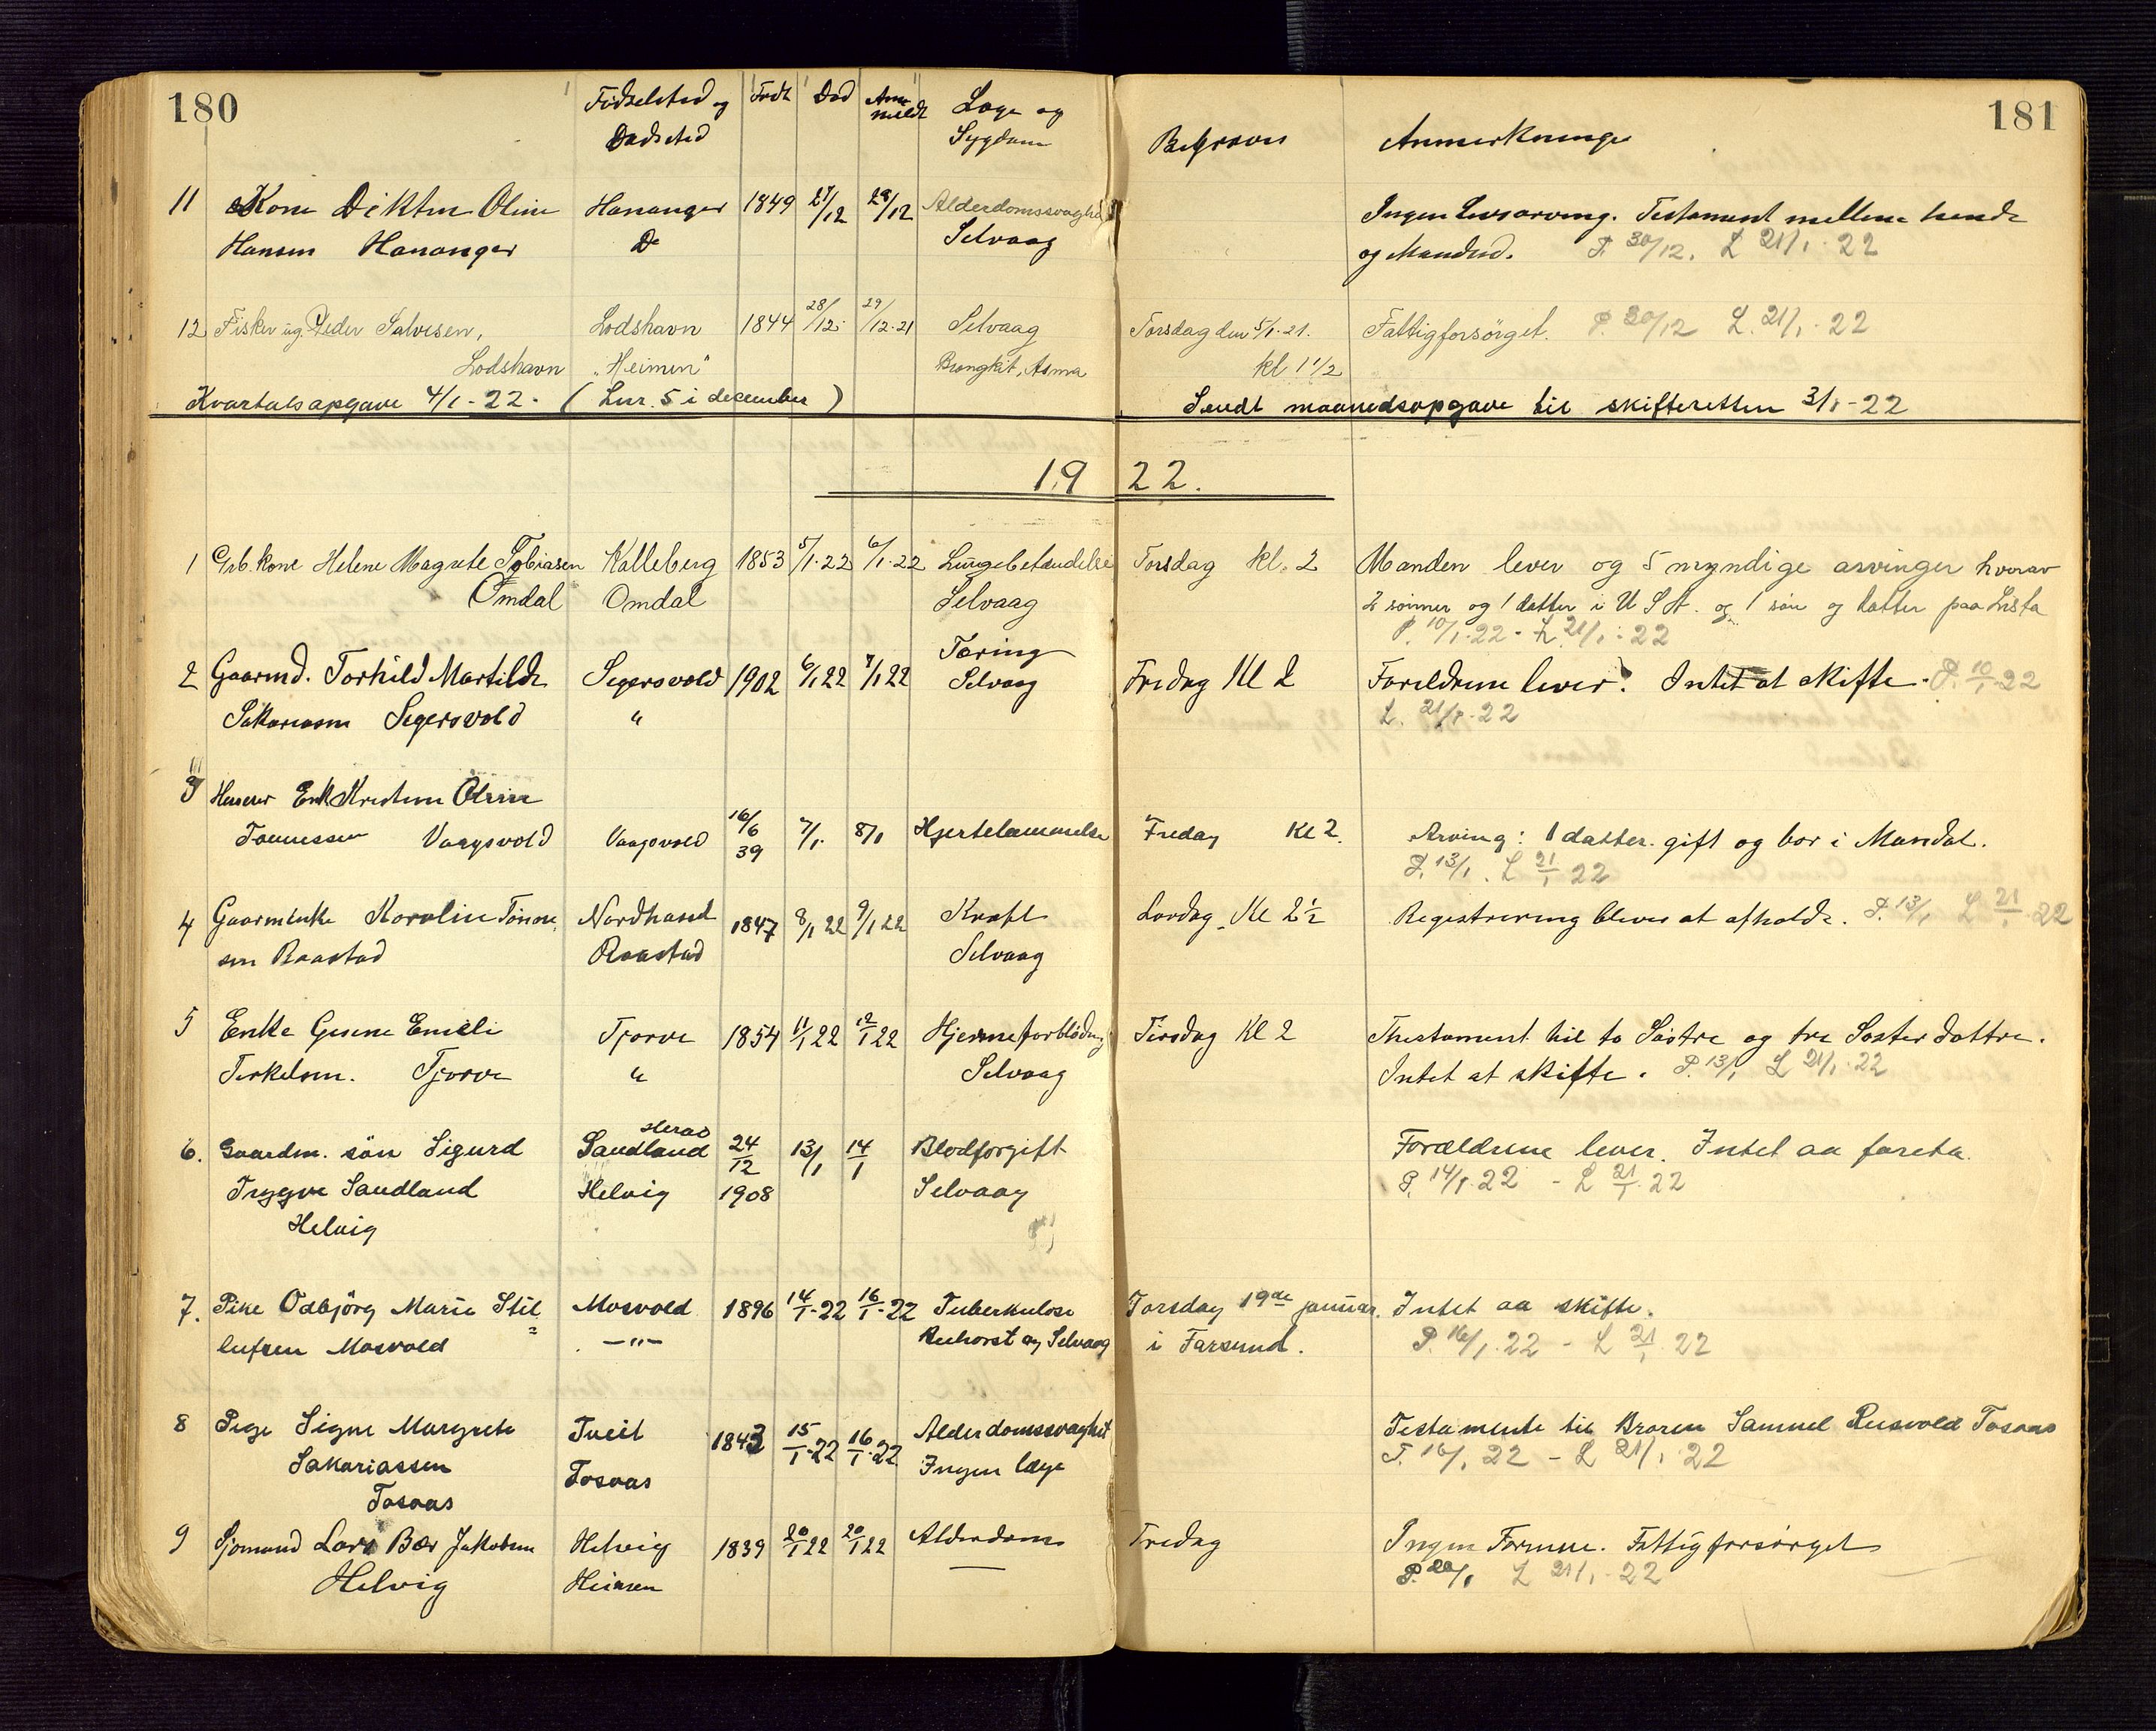 180
Födselsted og Födt Död Anmeldt Læge og
Dödsted Sygdom
11 Kone Oline Hananger 1849 27/12 29/12 Alderdomssvaghed
Hansen Hananger Do Selvaag
12 Fisker ug. Peder Salvesen, Lodshavn 1844 28/12 29/12-21 Selvaag
Lodshavn "Heimen" Brongkit, Asma
Kvartalsopgave 4/1-22. ( Lnr. 5 i december )
19
1 Arb. kone Helene Magrete Tobiasen Kalleberg 1853 5/1-22 6/1-22 Lungebetændelse
Omdal Omdal Selvaag
Tæring
2 Gaarmd. Torhild Martilde Segersvold 1902 6/1 22 7/1 22 Selvaag
Sakariasen Segersvold "
3 Enk Kristine Oline
Tønnessen Vaagsvold Vaagsvold 16/6 39 7/1. 8/1 Hjertelammelse
4 Gaarmenke Karoline Tönne- Nordhassel 1847 8/1 22 9/1 22 Kræft
sen Raastad Raastad Selvaag
5 Enke Gesine Emeli Tjorve 1854 11/1 22 12/1 22 Hjerneforblödning
Terkelsen. Tjorve " Selvaag
Herad
6. Gaardm. sön Sigurd Saudland 24/12 13/1 14/1 Blodforgift
Trygve Saudland Helvig 1908 Selvaag
Helvig
7. Pike Odbjörg Marie Stil= Mosvold 1896 14/1-22 16/1-22 Tuberkulose
lufsen Mosvold —"— Buchorst og Selvaag
8 Pige Signe Margrete Tveit 1843 15/1-22 16/1-22 Alderdomssvaghet
Sakariassen Tosaas Ingen læge
Tosaas
9 Sjömand Lars Bær Jakobsen Helvig 1839 20/1 22 20/1 22 Alderdom
Helvig Heimen —
181
Begraves Anmerkninger
Ingen Livsarving. Testament mellem hende
og Manden. P. 30/12. L 21/1-22
Torsdag den 5/1-21. Fattigforsörget. P. 30/12 L. 21/1-22
kl 1 1/2
Sendt maanedsopgave til skifteretten 3/1-22
22.
Torsdag kl. 2 Manden lever og 5 myndige arvinger hvorav
2 sönner og 1 datter i U S A. og 1 sön og datter paa Lista
P. 10/1-22 - L 21/1-22
Fredag Kl 2 Foreldrene lever. Intet at skifte. P. 10/1 22
L. 21/1-22
Fredag Kl 2. Arving: 1 datter. gift og bor i Mandal.
P. 13/1. L 21/1 22
Lordag Kl 2 1/2 Registrering blever at afholde. P. 13/1 L 21/1-22
Tirsdag Kl 2 Thestament til to Söstre og tre Soster dottre.
Intet at skifte. P. 13/1 L 21/1-22
Forældrene lever. Intet aa foreta.
P. 14/1-22 - L 21/1-22
Torsdag 19de januar. Intet aa skifte.
i Farsund. P. 16/1-22 - L 21/1 22
Testamente til Broren Samuel Tosaas
P. 16/1 22 - L 21/1 22
Fredag Ingen Formue. Fattigforsörget
P. 20/1 L 21/1-22